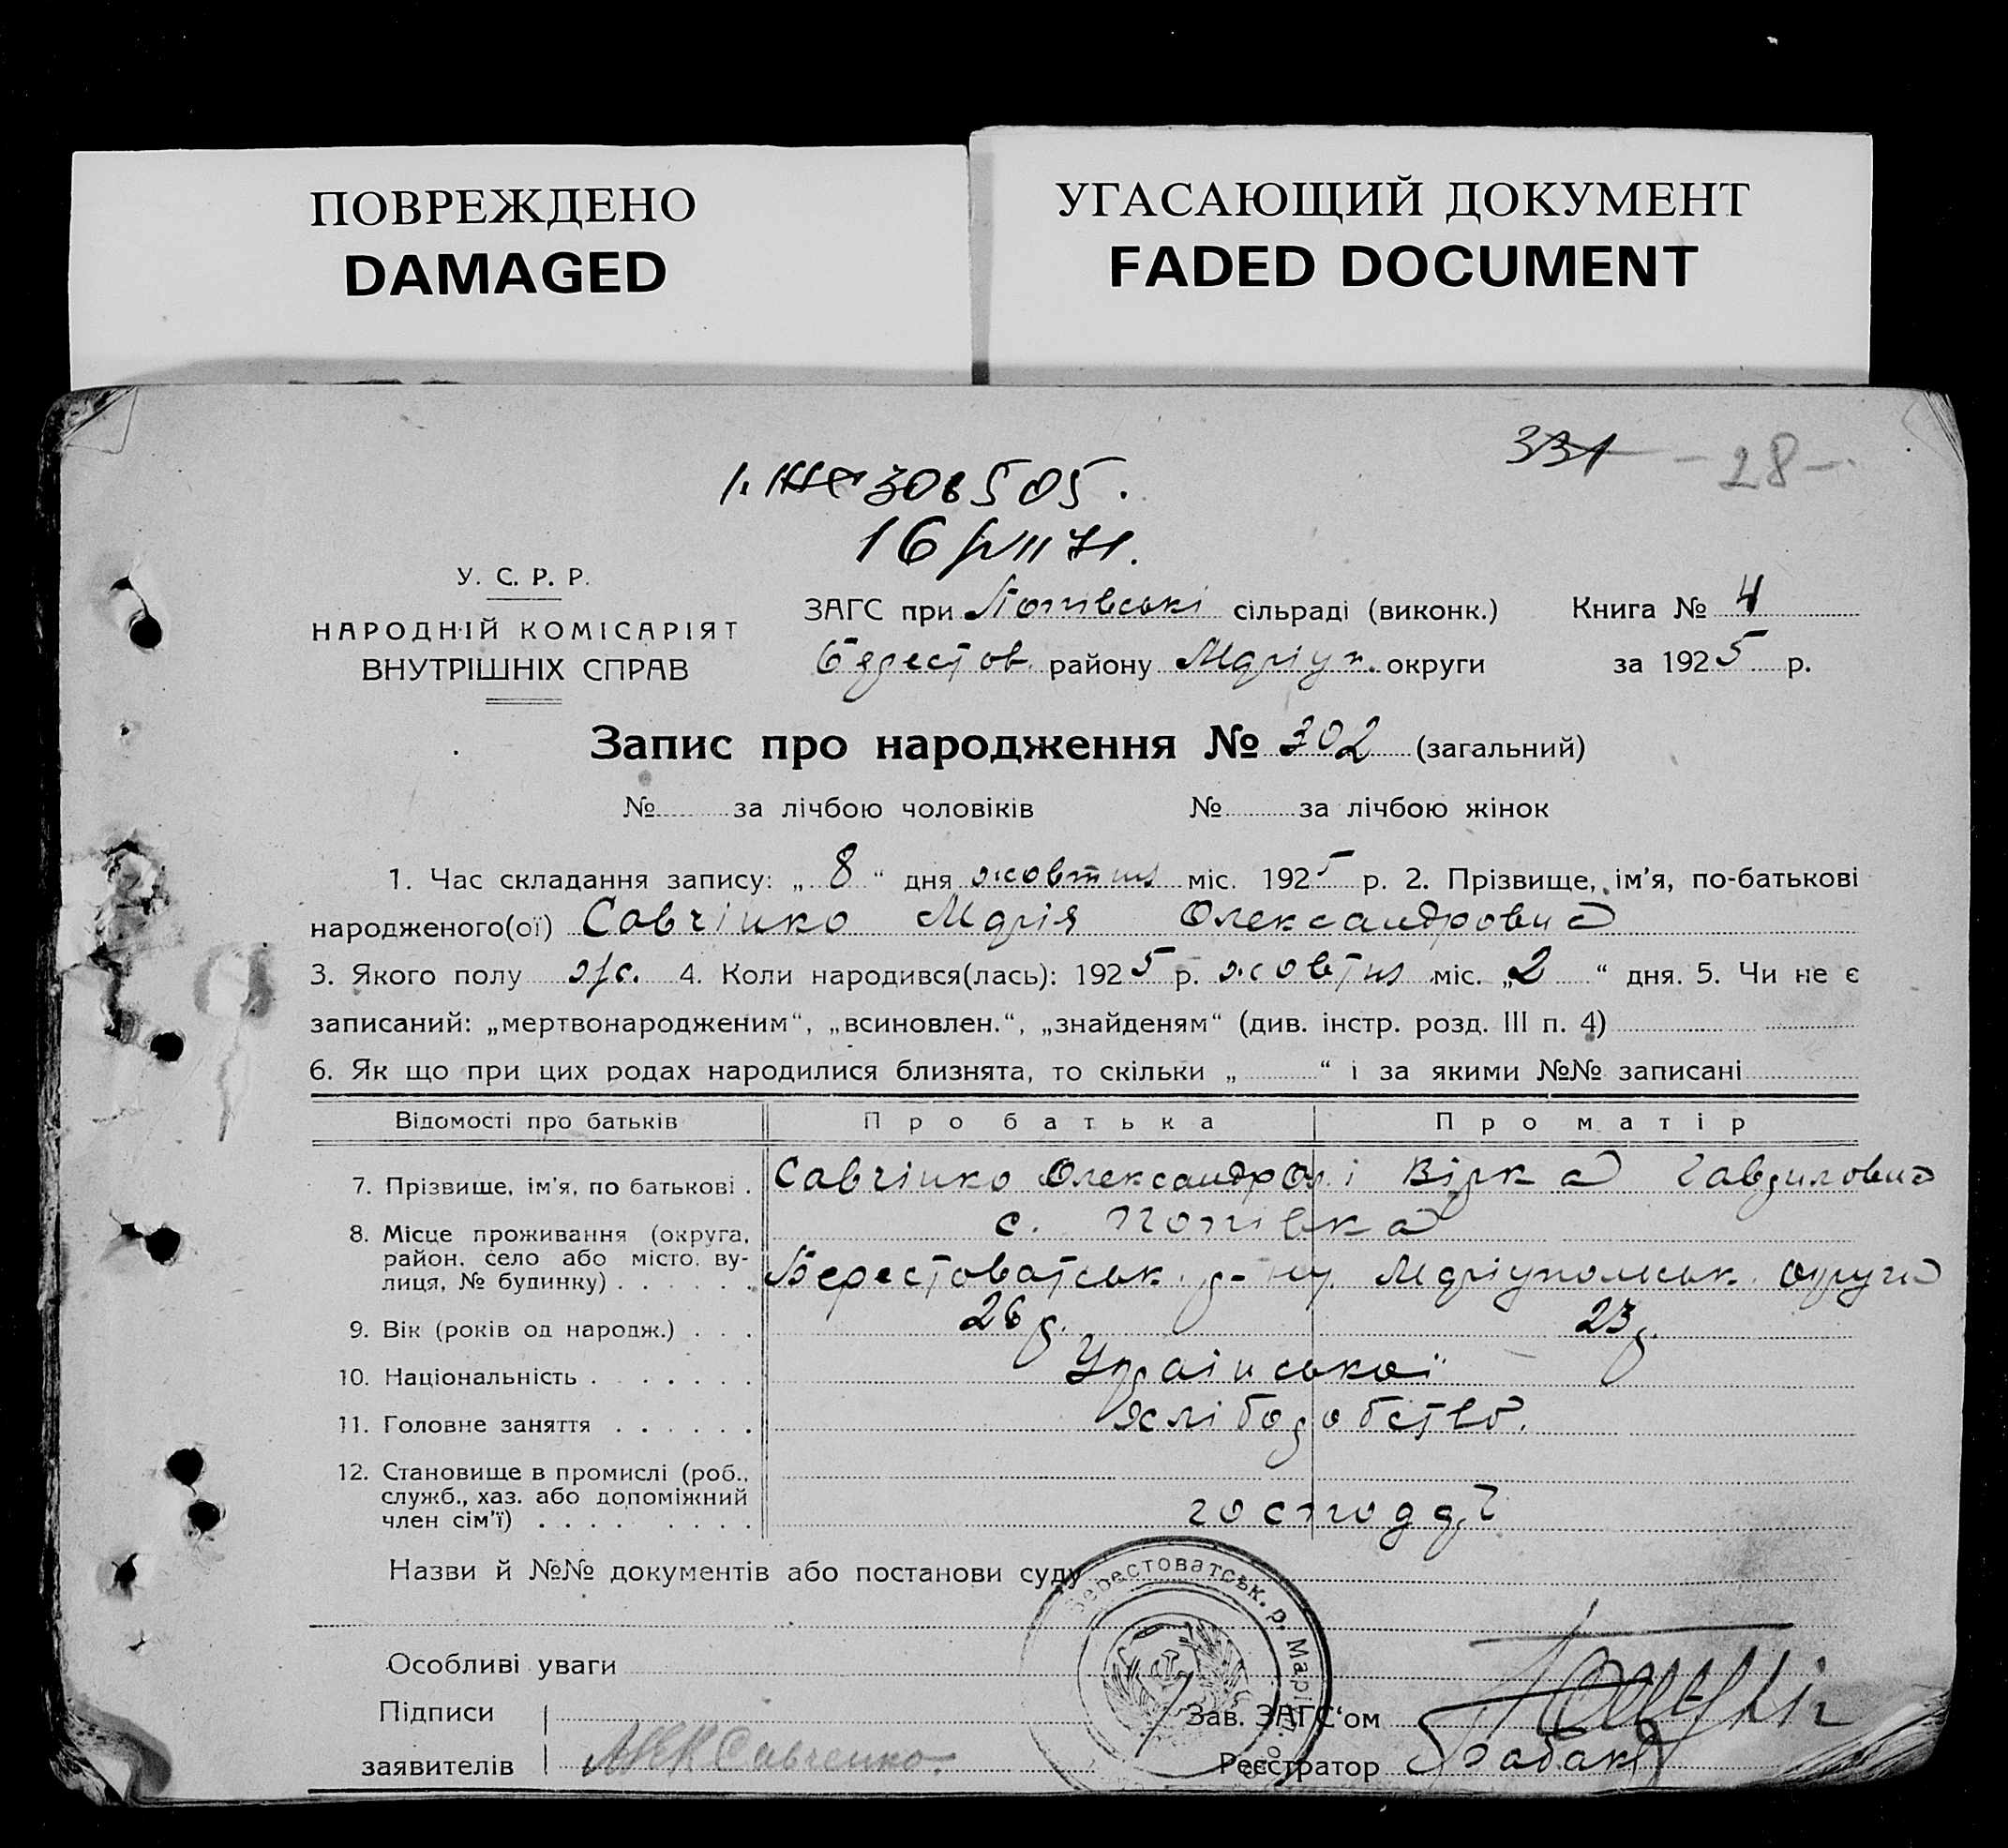 ПОВРЕЖДЕНО
DAMAGED
УГАСАЮЩИЙ ДОКУМЕНТ
FADED DOCUMENT
331 - 28 -
306505.
16/VII 71.
У. С. Р. Р.
НАРОДНІЙ КОМІСАРІЯТ
ВНУТРІШНІХ СПРАВ
ЗАГС при Попівські сільраді (виконк.) Книга № 4
Берестов. району Маріуп. округи за 1925 р.
Запис про народження № 302 (загальний)
№ за лічбою чоловіків № за лічбою жінок
1. Час складання запису: „ 8 “ дня жовтня міс. 1925 р. 2. Прізвище, ім’я, по-батькові
народженого(ої) Савчінко Марія Олександровна
3. Якого полу ж. 4. Коли народився(лась): 1925 р. жовтня міс. „ 2 “ дня. 5. Чи не є
записаний: „мертвонародженим“, „всиновлен.“, „знайденям“ (див. інстр. розд. III п. 4)
6. Як що при цих родах народилися близнята, то скільки „ “ і за якими №№ записані
Відомості про батьків Про батька Про матір
7. Прізвище, ім’я, по батькові . Савчінко Олександр і Вірка Гавриловна
8. Місце проживання (округа, район, село або місто, вулиця, № будинку) . с. Попівка
Берестоватськ. р-ну Маріупольськ. округи
9. Вік (років од народж.) . . . 26 р. 23 р.
10. Національність . . . . . . . Української
11. Головне заняття . . . . . . Хліборобство.
12. Становище в промислі (роб., служб., хаз. або допоміжний член сім’ї) . . . . . . . . господарі
Назви й №№ документів або постанови суду
Берестоватськ. р. Маріюп. о
Особливі уваги
Підписи
Зав. ЗАГС‘ом
заявителів Савченко.
Реєстратор